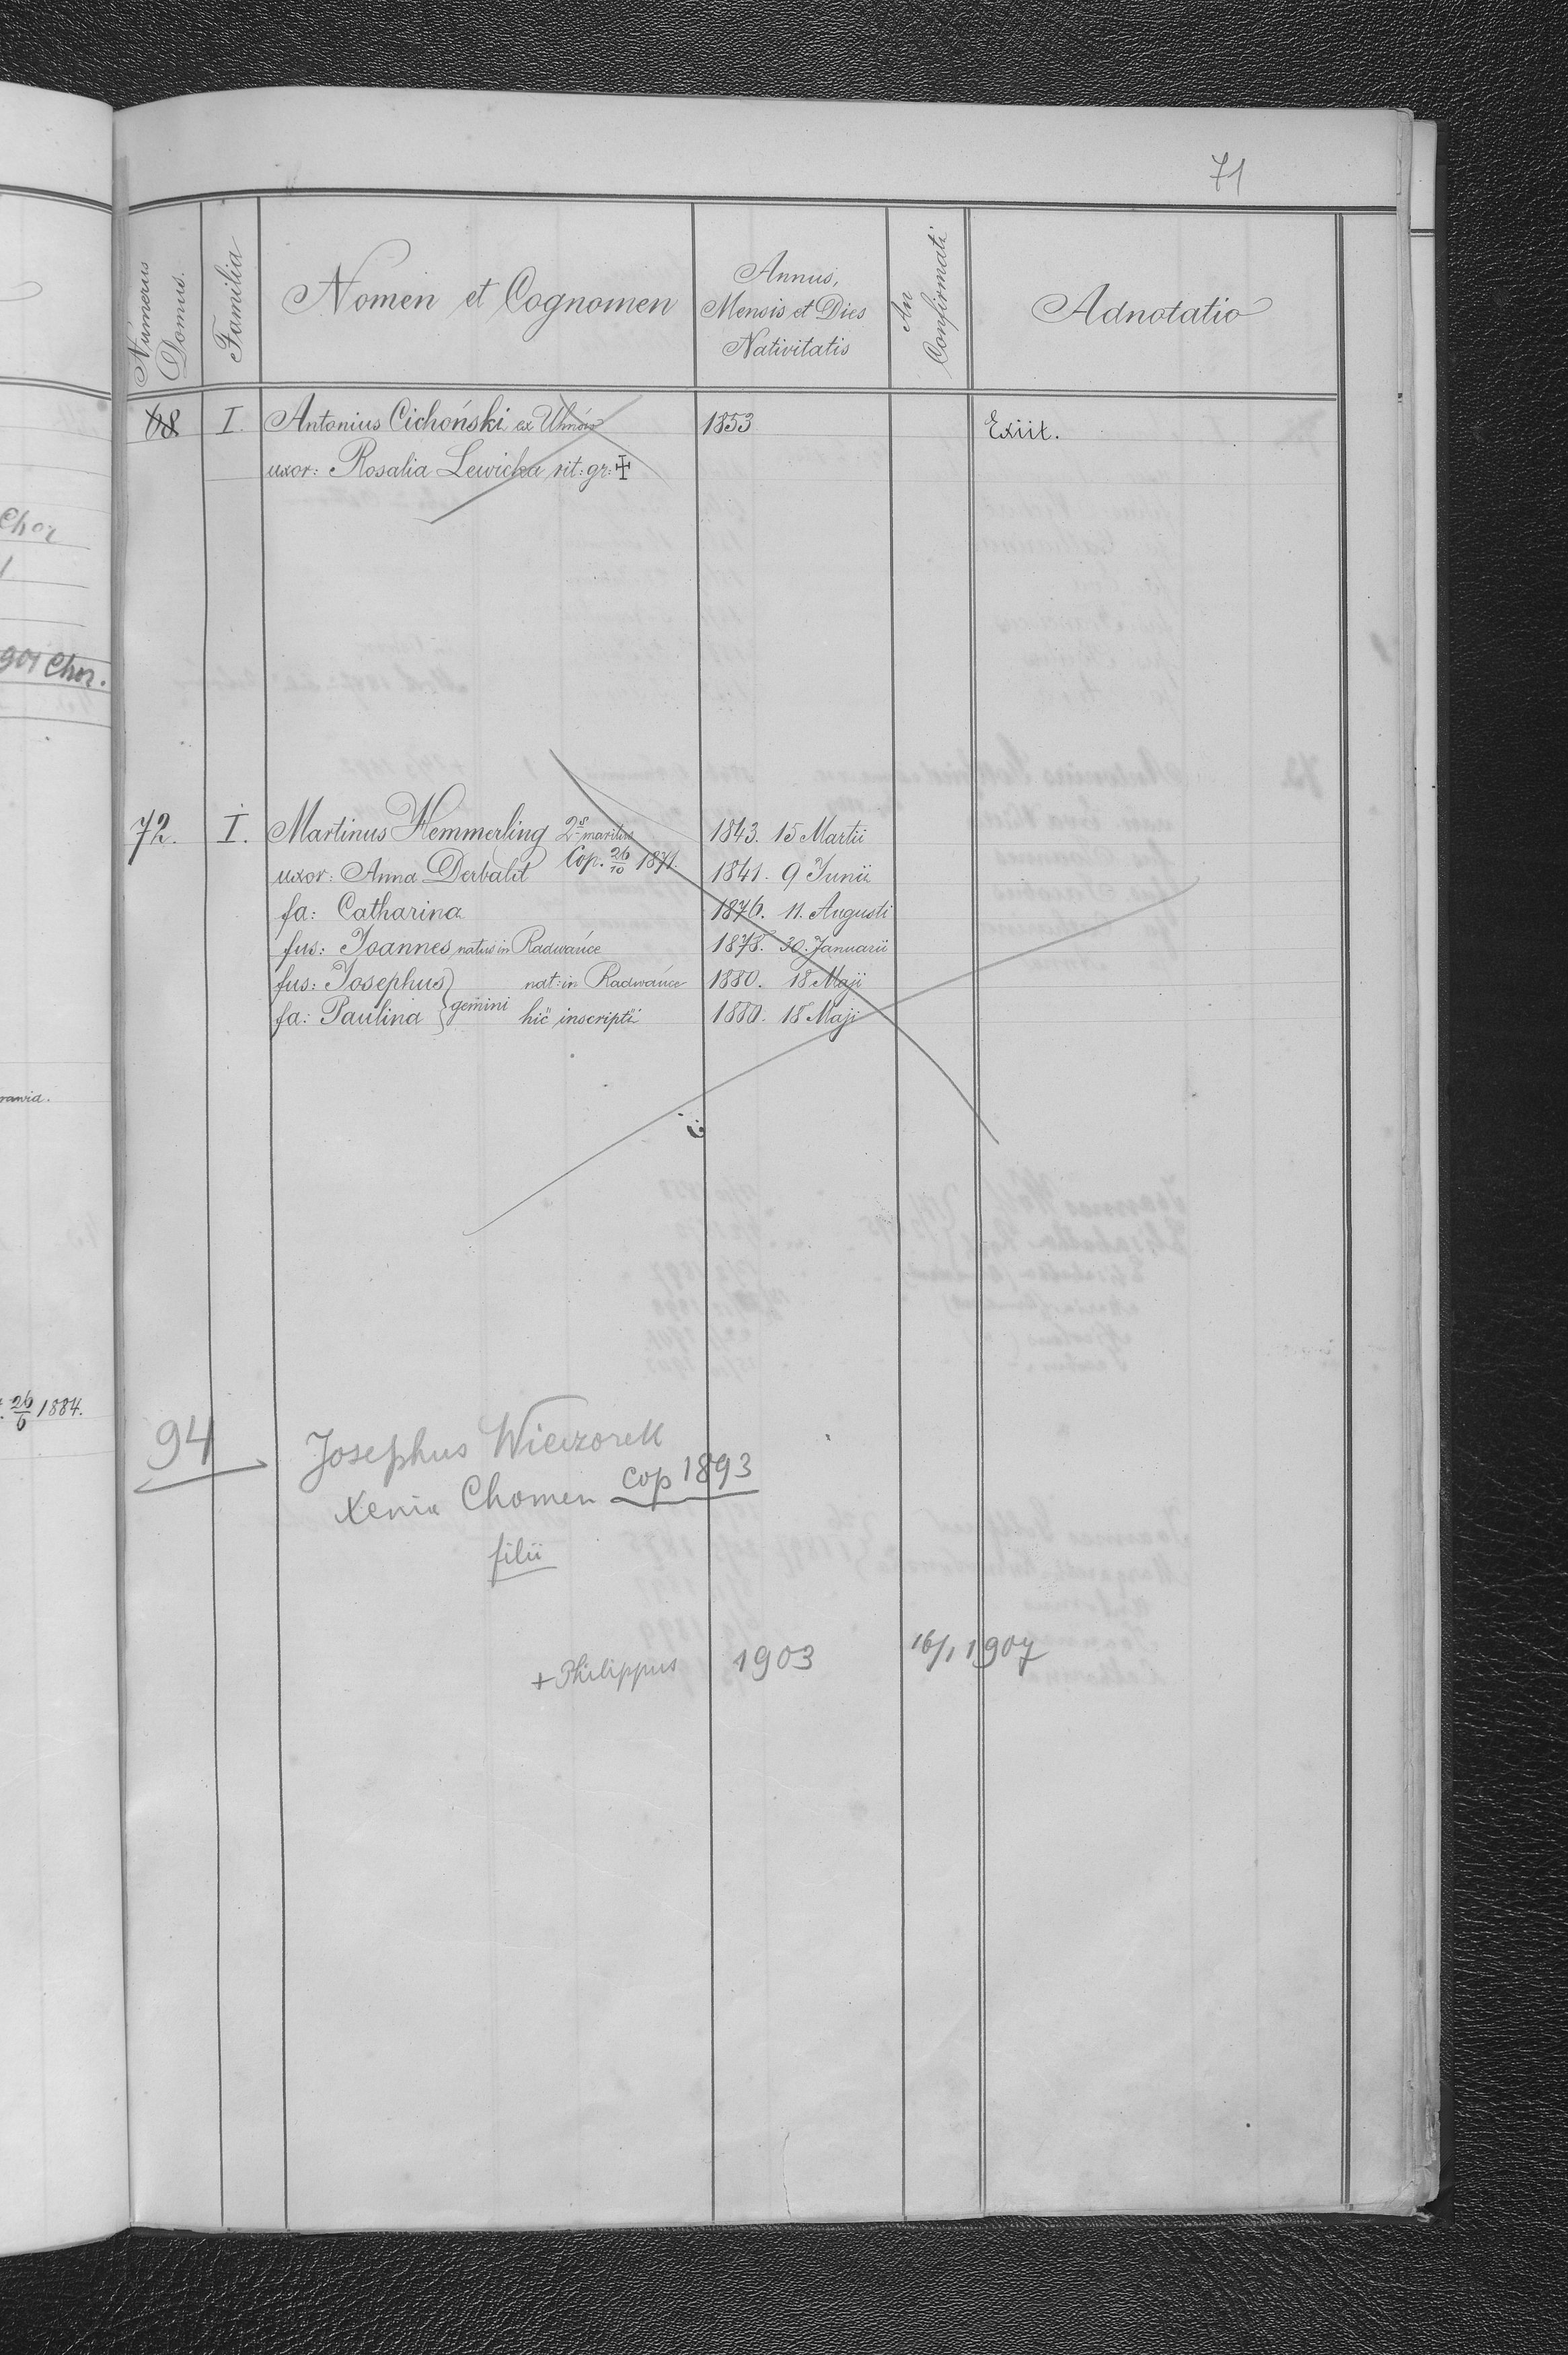 71
Numerus Domus.
Familia
Nomen et Cognomen
Annus,
Mensis et Dies
Nativitatis
An Confirmati
Adnotatio
68 I. Antonius Cichoński ex Uhnów 1853 Exiit.
uxor: Rosalia Lewicka rit: gr: ✝
Chor
901 Chor.
72. I. Martinus Hemmerling 2s maritus 1843. 15 Martii
Cop. 26/10 1871.
uxor: Anna Derbalit 1841. 9 Junii
fa: Catharina 1876. 11. Augusti
fus: Joannes natus in Radwańce 1878. 30. Januarii
fus: Josephus } gemini nat: in Radwańce 1880. 18 Maji
fa: Paulina } hic inscripti 1880. 18 Maji
26/6 1884.
94 Josephus Wieczorek
Xenia Chomen Cop 1893
filii
+ Philippus 1903 16/1 1907